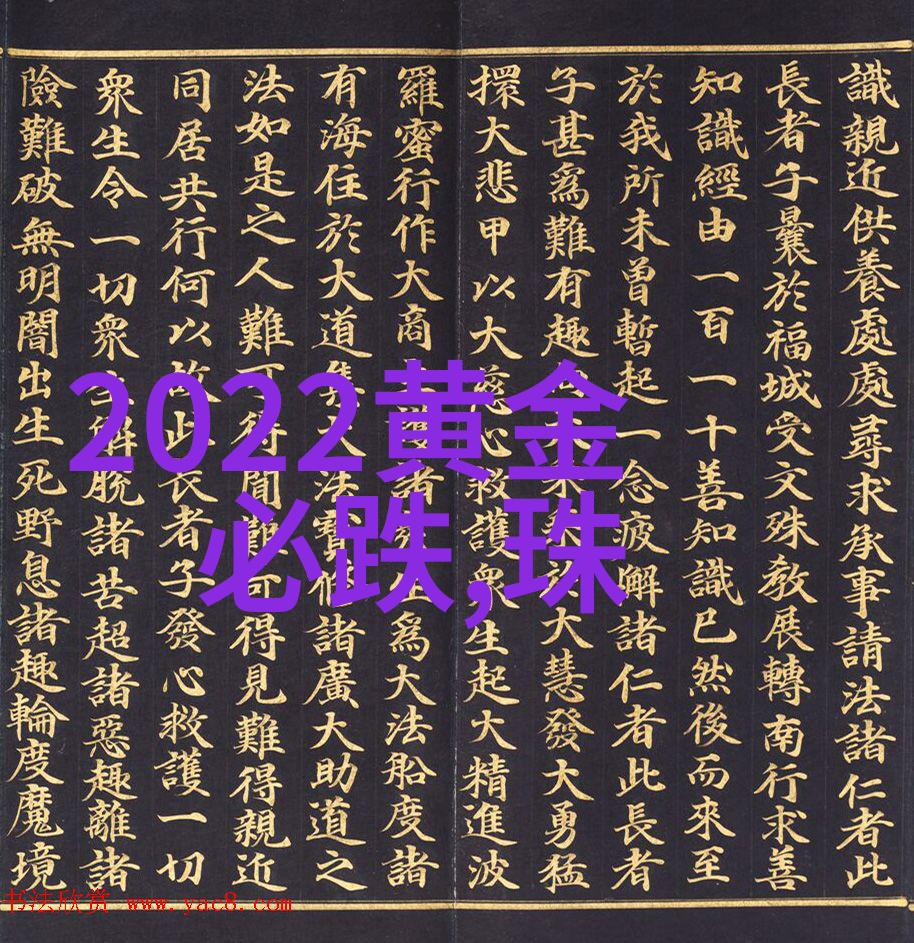 識親近供養處處尋求承事請法諸仁者此
長者子曩於福城受文殊教展轉南行求善
知識經由一百一十善知識已然後而來至
於我所未曾暫起一念疲懈諸仁者此長者
子甚爲難有趣大慧發大勇猛
擐大悲甲以大慈心救護衆生起大精進波
羅蜜行作大商護諸生爲大法船度諸
有海住於大道集大法寶修諸廣大助道之
法如是之人難可得聞難可得見難得親近
同居共行何以故此長者子發心救護一切
衆生令一切衆生解脫諸苦超諸惡趣離諸
險難破無明闇出生死野息諸趣輪度魔境
2022黄金
必跌,珠
书法欣赏 www.yac8.com